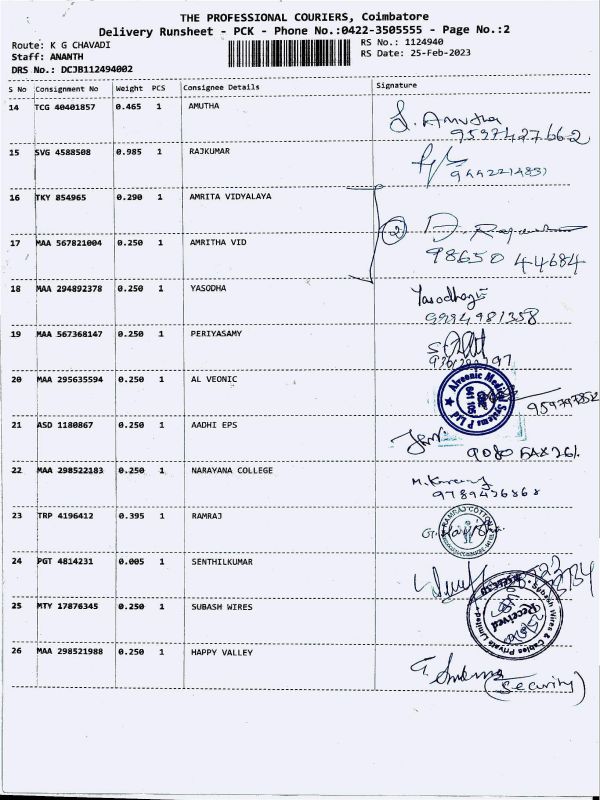 THE PROFESSIONAL COURIERS, Coimbatore
Delivery Runsheet - PCK - Phone No.:0422-3505555 - Page No.:2
Route: K G CHAVADI
RS No.: 1124940
Staff: ANANTH
RS Date: 25-Feb-2023
DRS No.: DCJB112494002
S No Consignment No Weight PCS Consignee Details Signature
14 TCG 40401857 0.465 1 AMUTHA
S. Amutha
15 SVG 4588508 0.985 1 RAJKUMAR
16 TKY 854965 0.290 1 AMRITA VIDYALAYA
2
17 MAA 567821004 0.250 1 AMRITHA VID
98650 44684
18 MAA 294892378 0.250 1 YASODHA
9994981358
19 MAA 567368147 0.250 1 PERIYASAMY
20 MAA 295635594 0.250 1 AL VEONIC
Alveonic Medical Systems P Ltd
CBE
641 105
21 ASD 1180867 0.250 1 AADHI EPS
22 MAA 298522183 0.250 1 NARAYANA COLLEGE
23 TRP 4196412 0.395 1 RAMRAJ
RAMRAJ COTTON
24 PGT 4814231 0.005 1 SENTHILKUMAR
25 MTY 17876345 0.250 1 SUBASH WIRES
Subash Wires & Cables Private Limited
Received
26 MAA 298521988 0.250 1 HAPPY VALLEY
(Security)